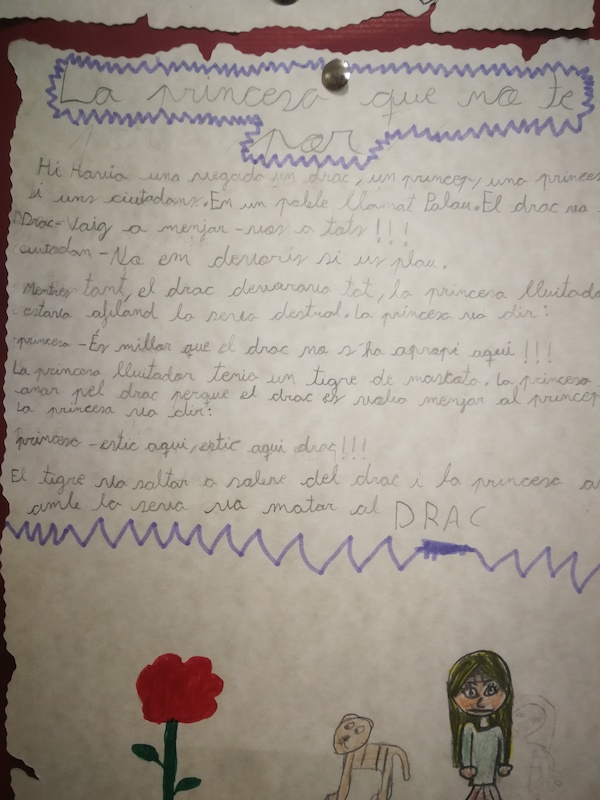 La princesa que no te
por
Hi Havia una vegada un drac, un princep, una princes
i uns ciutadans. En un poble llamat Palau. El drac va
Drac-Vaig a menjar-vos a tots!!!
ciutadan-No em devoris si us plau.
Mentres tant, el drac devorava tot, la princesa lluitado
estava afiland la seva destral. La princesa va dir:
princesa-És millor que el drac no s'ha apropi aqui!!!
La princesa lluitador tenia un tigre de mascato. La princesa
anar pel drac perque el drac es volia menjar al princep
La princesa va dir:
princesa-estic aqui, estic aqui drac!!!
El tigre va saltar a sobre del drac i la princesa a
amb la seva va matar al DRAC